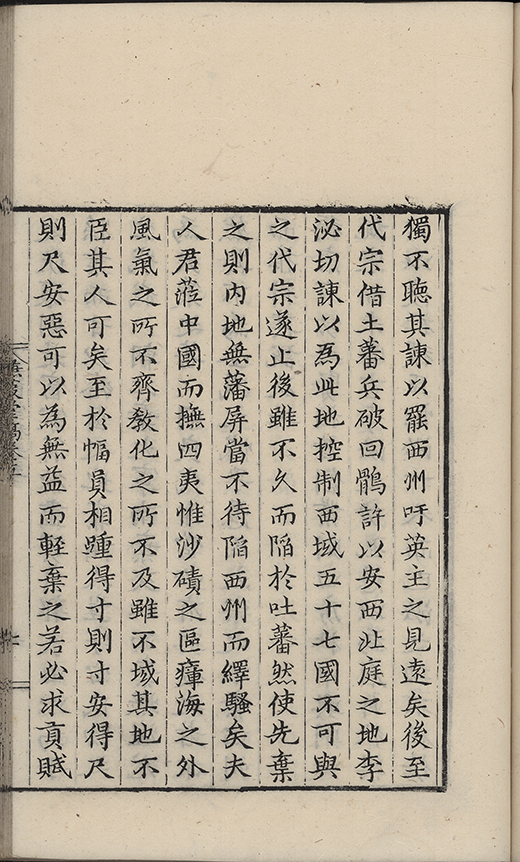 獨不聽其諫以罷西州吁英主之見遠矣後至
代宗借土蕃兵破回鶻許以安西北庭之地李
泌切諫以為此地控制西域五十七國不可與
之代宗遂止後雖不久而陷於吐蕃然使先棄
之則內地無藩屏當不待陷西州而繹騷矣夫
人君蒞中國而撫四夷惟沙磧之區瘴海之外
風氣之所不齊教化之所不及雖不域其地不
臣其人可矣至於幅員相踵得寸則寸安得尺
則尺安惡可以為無益而輕棄之若必求貢賦